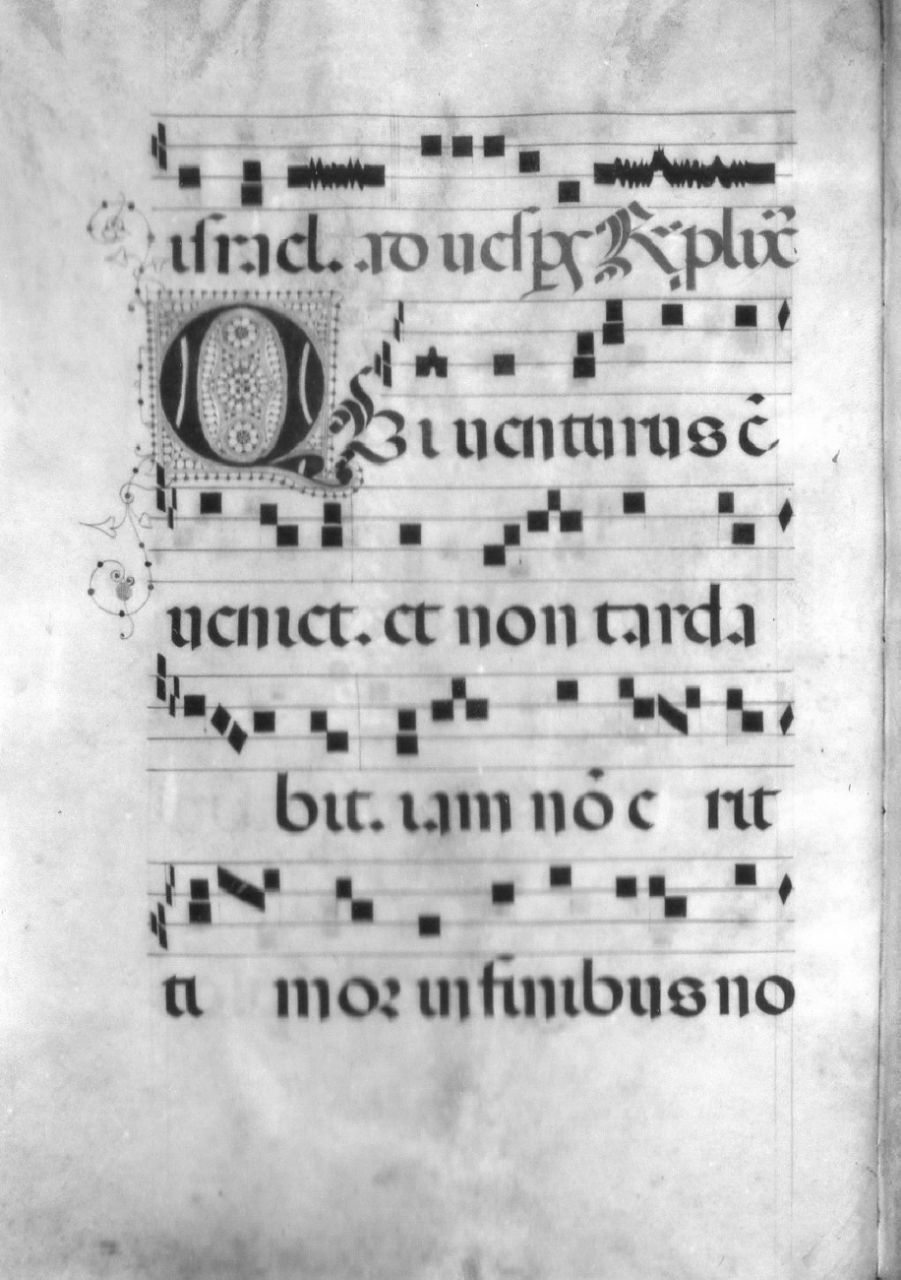 israel. ad vesp̄ R̄ plix̄
QVi uenturus ē
ueniet. et non tarda
bit. iam nō e rit
ti mor in finibus no